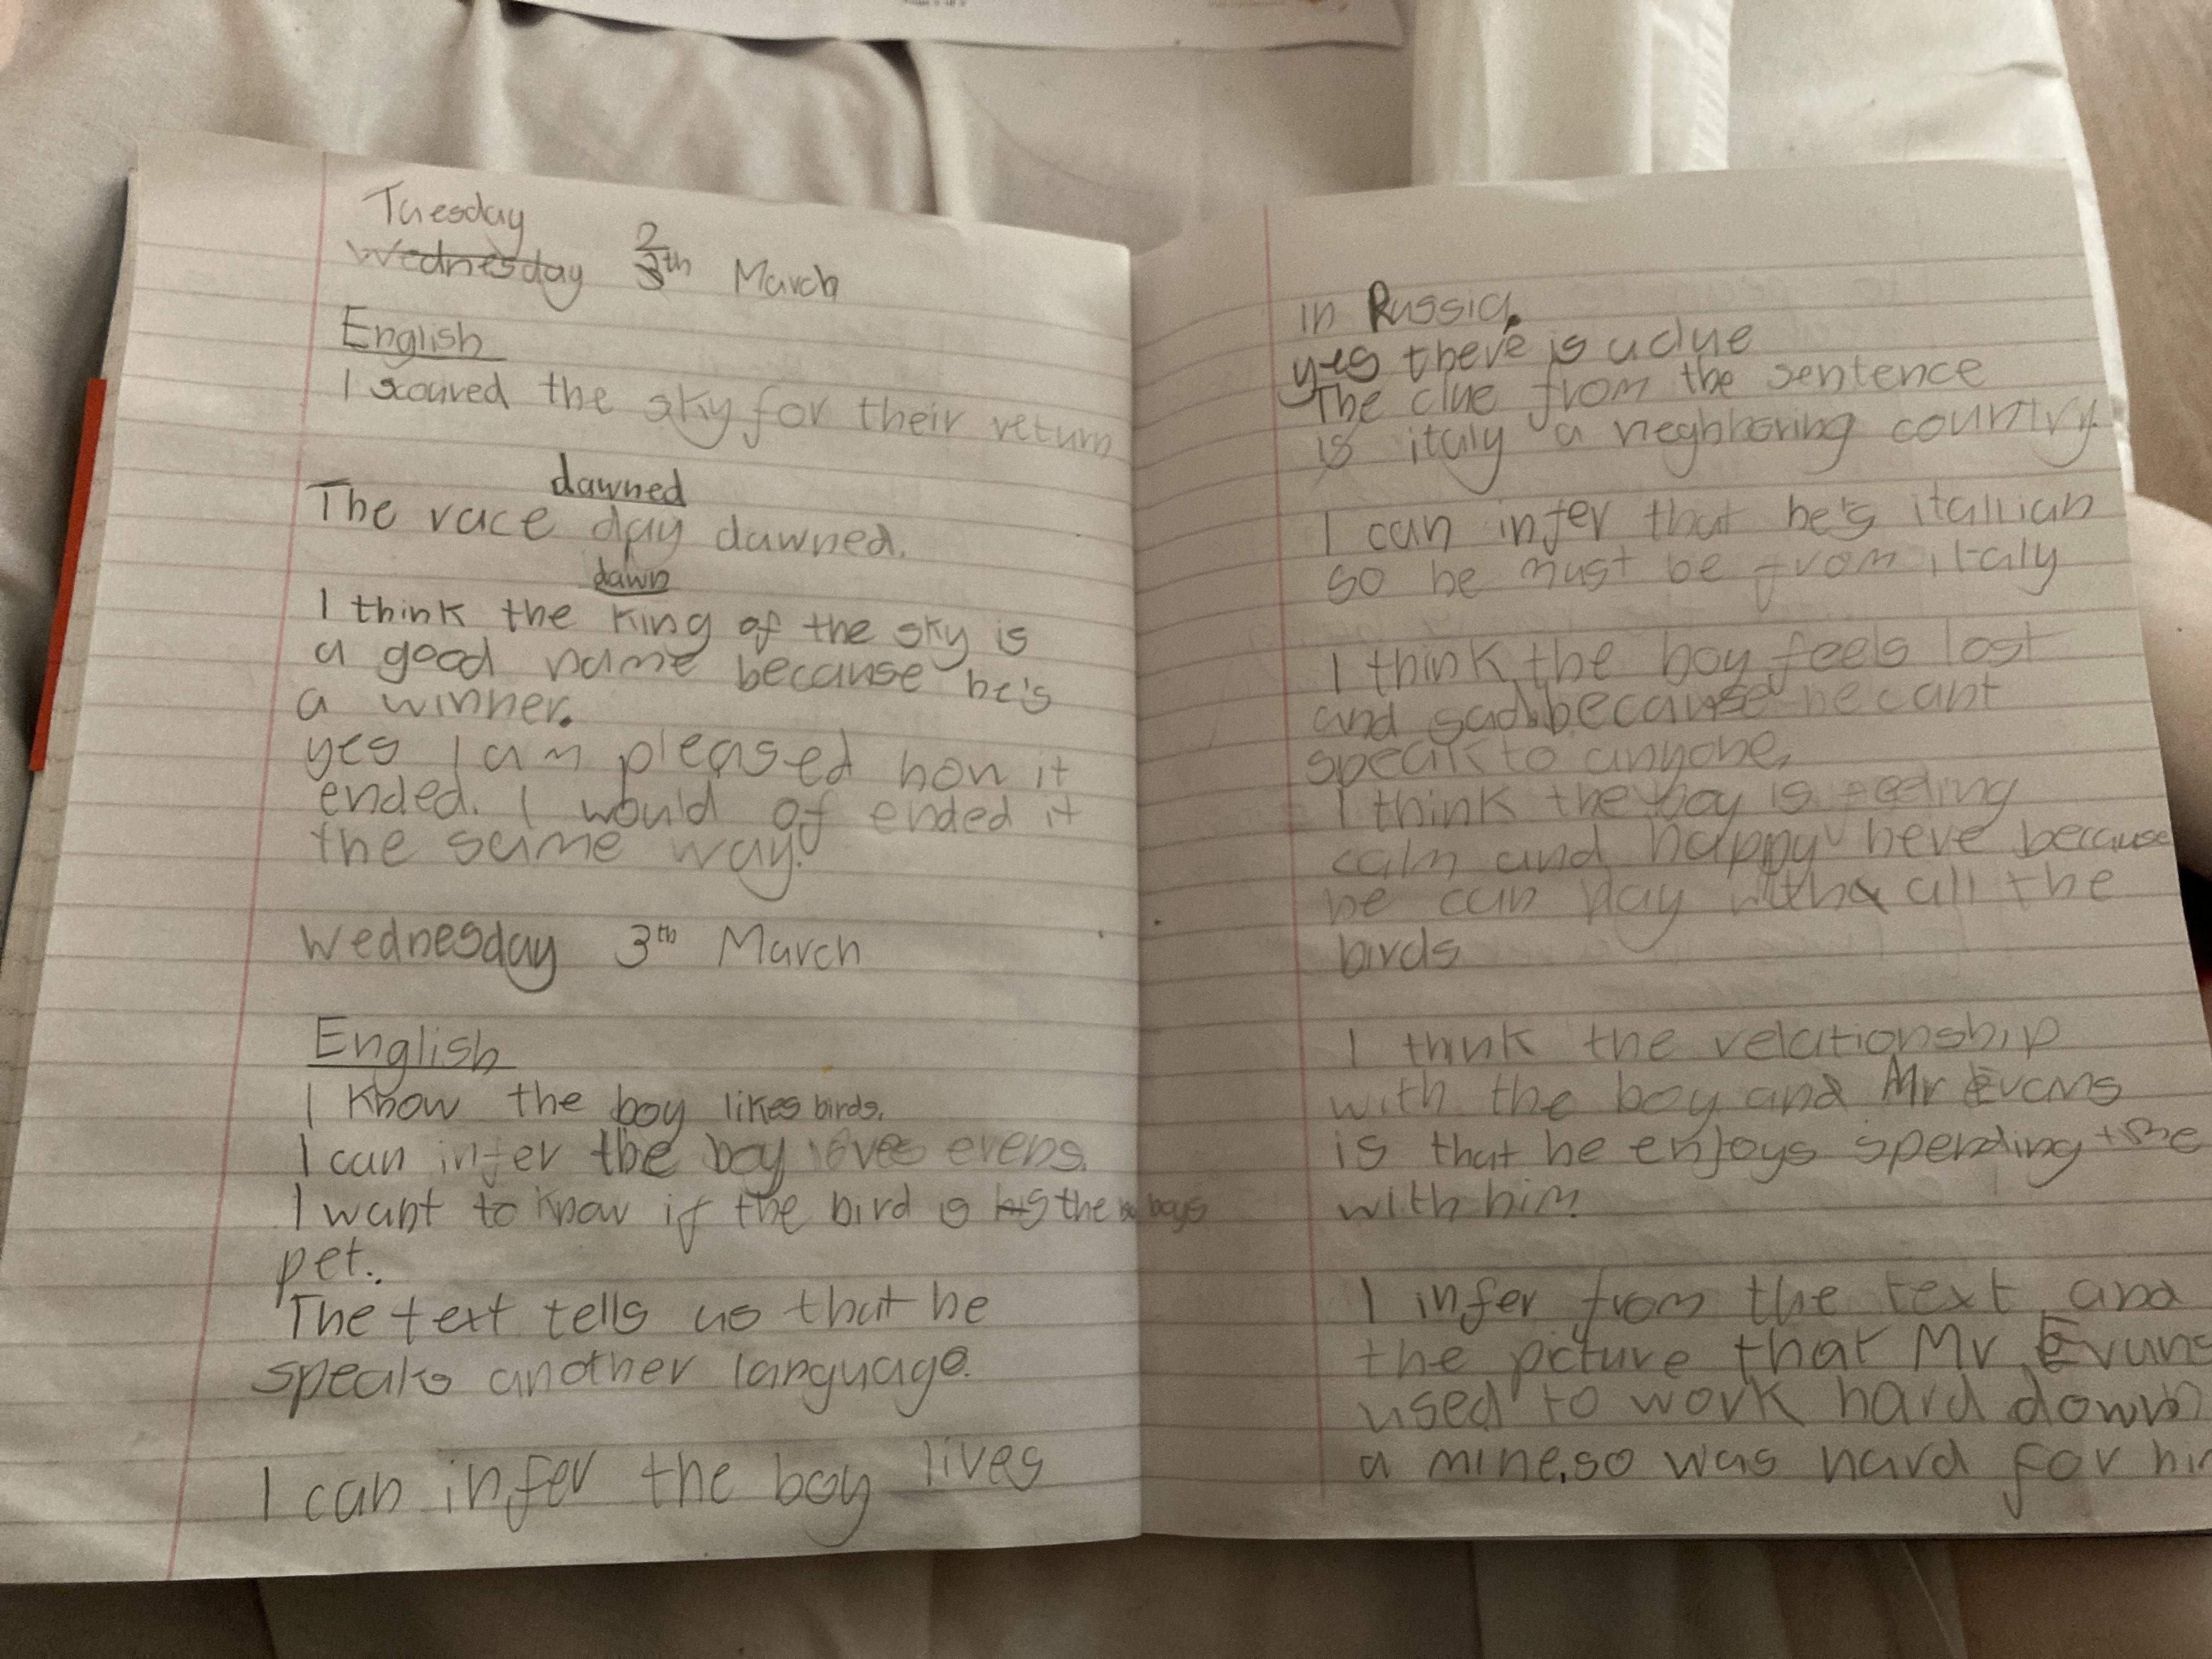 Tuesday
Wednesday 2th March
English
I scoured the sky for their return
dawned
The race day dawned.
dawn
I think the king of the sky is
a good name because he's
a winner.
yes I am pleased how it
ended. I would of ended it
the same way.
Wednesday 3th March
English
I know the boy likes birds.
I can infer the boy loves evens.
I want to know if the bird is his the boys
pet.
The text tells us that he
speaks another language.
I can infer the boy lives
in Russia.
yes there is a clue
The clue from the sentence
is italy a neghboring country.
I can infer that he's itallian
so he must be from italy
I think the boy feels lost
and sad because he cant
speak to anyone.
I think the boy is feeling
calm and happy here because
he can play with all the
birds
I think the relationship
with the boy and Mr Evans
is that he enjoys spending time
with him
I infer from the text and
the picture that Mr Evans
used to work hard down
a mine, so was hard for